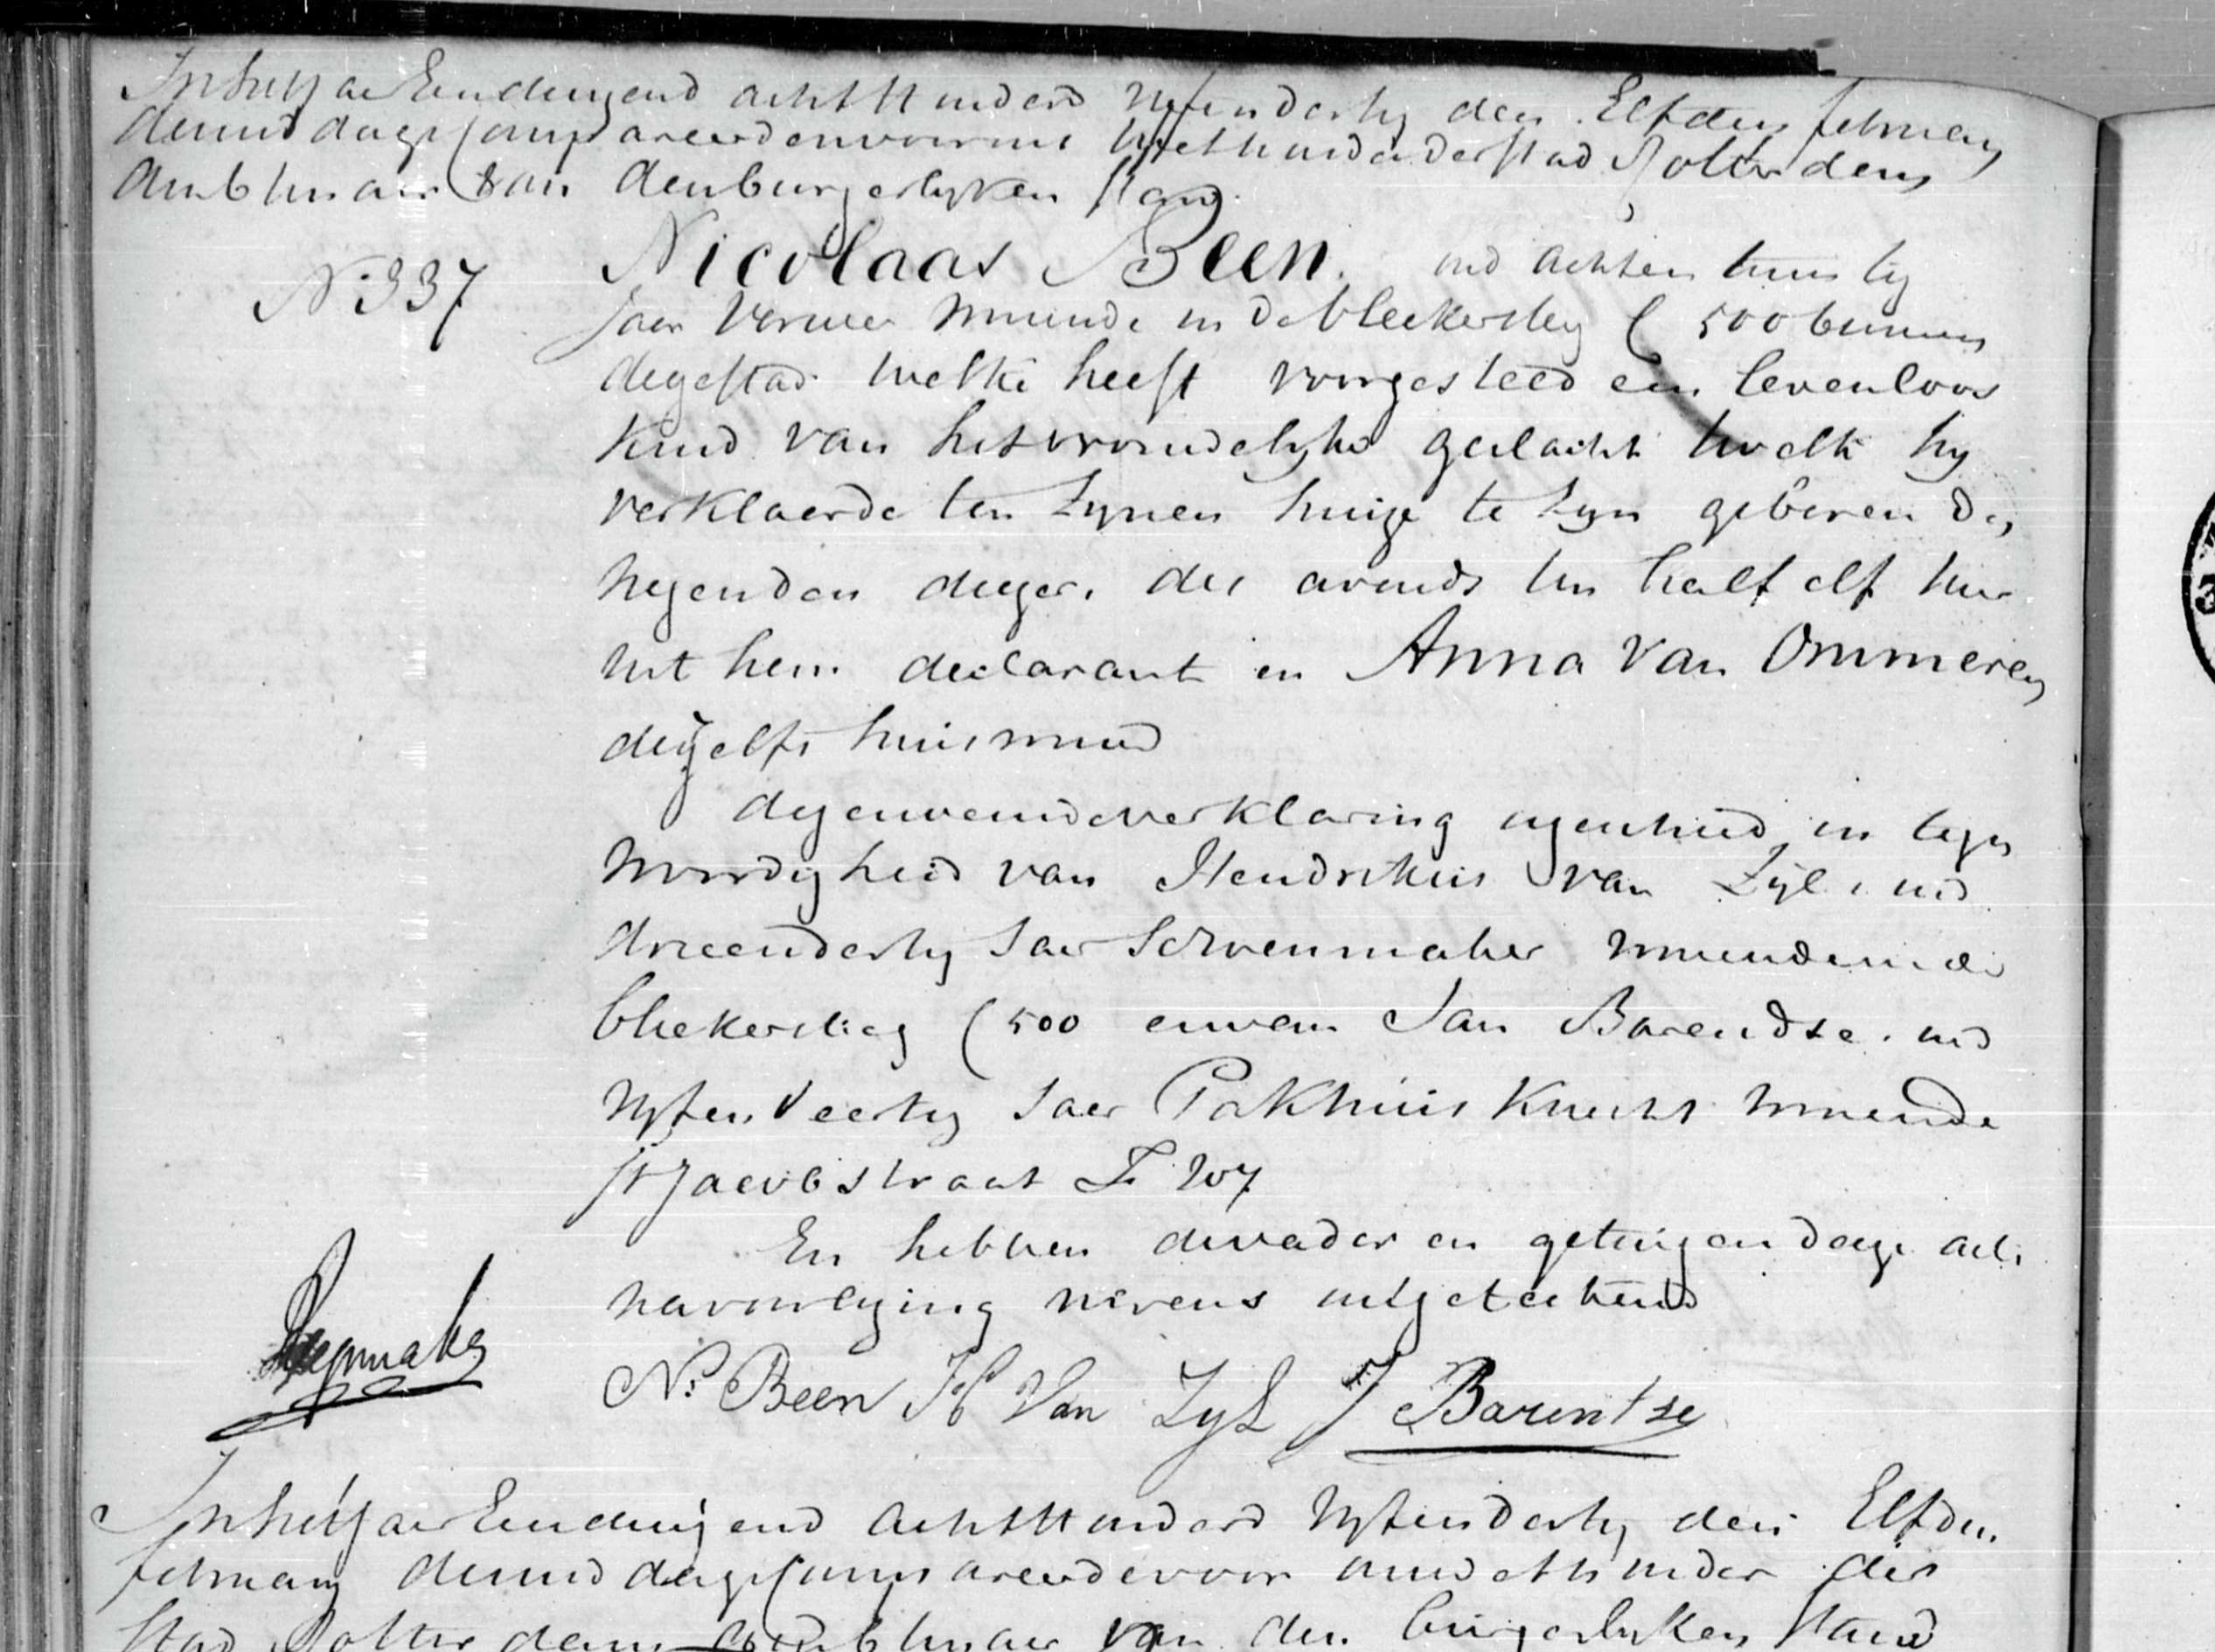 In het Jaer Eenduizend achthhonderd vyfendertig den Elfden february
des middags compareerden voor ons wethouder der stad Rotterdam
Ambtenaar van den burgerlyken stand
No 337
Nicolaas Been. oud achtentwintig
Jaer verwer woonende in de bleekersteeg C 500 binnen
dezestad welke heeft voorgesteld een levenloos
kind van het vrouwelyke geslacht welk hy
verklaerde ten zynen huize te zyn geboren den
negenden dezer, des avonds ten half elf uur
uit hem declarant en Anna Van Ommeren
deszelfs huisvrouw
dezen vande verklaring in tegen
woordigheid van Hendrikus van Zijl, oud
drieendertig Jaer Schoenmaker woonende in de
bleekersteeg C 500 en van Jan Barendse. oud
vyfenveertig Jaer Pakhuis Knecht woonende
St Jacobstraat F 207
En hebben de vader en getuigen deze acte
na voorlezing nevens ons geteekend
N. Been H Van Zyl J Barentse
In het Jaer Eenduizend achthhonderd vyfendertig den Elfden
february des middags compareerde voor ons wethouder der
Stad Rotterdam ambtenaar van den burgerlyken Stand